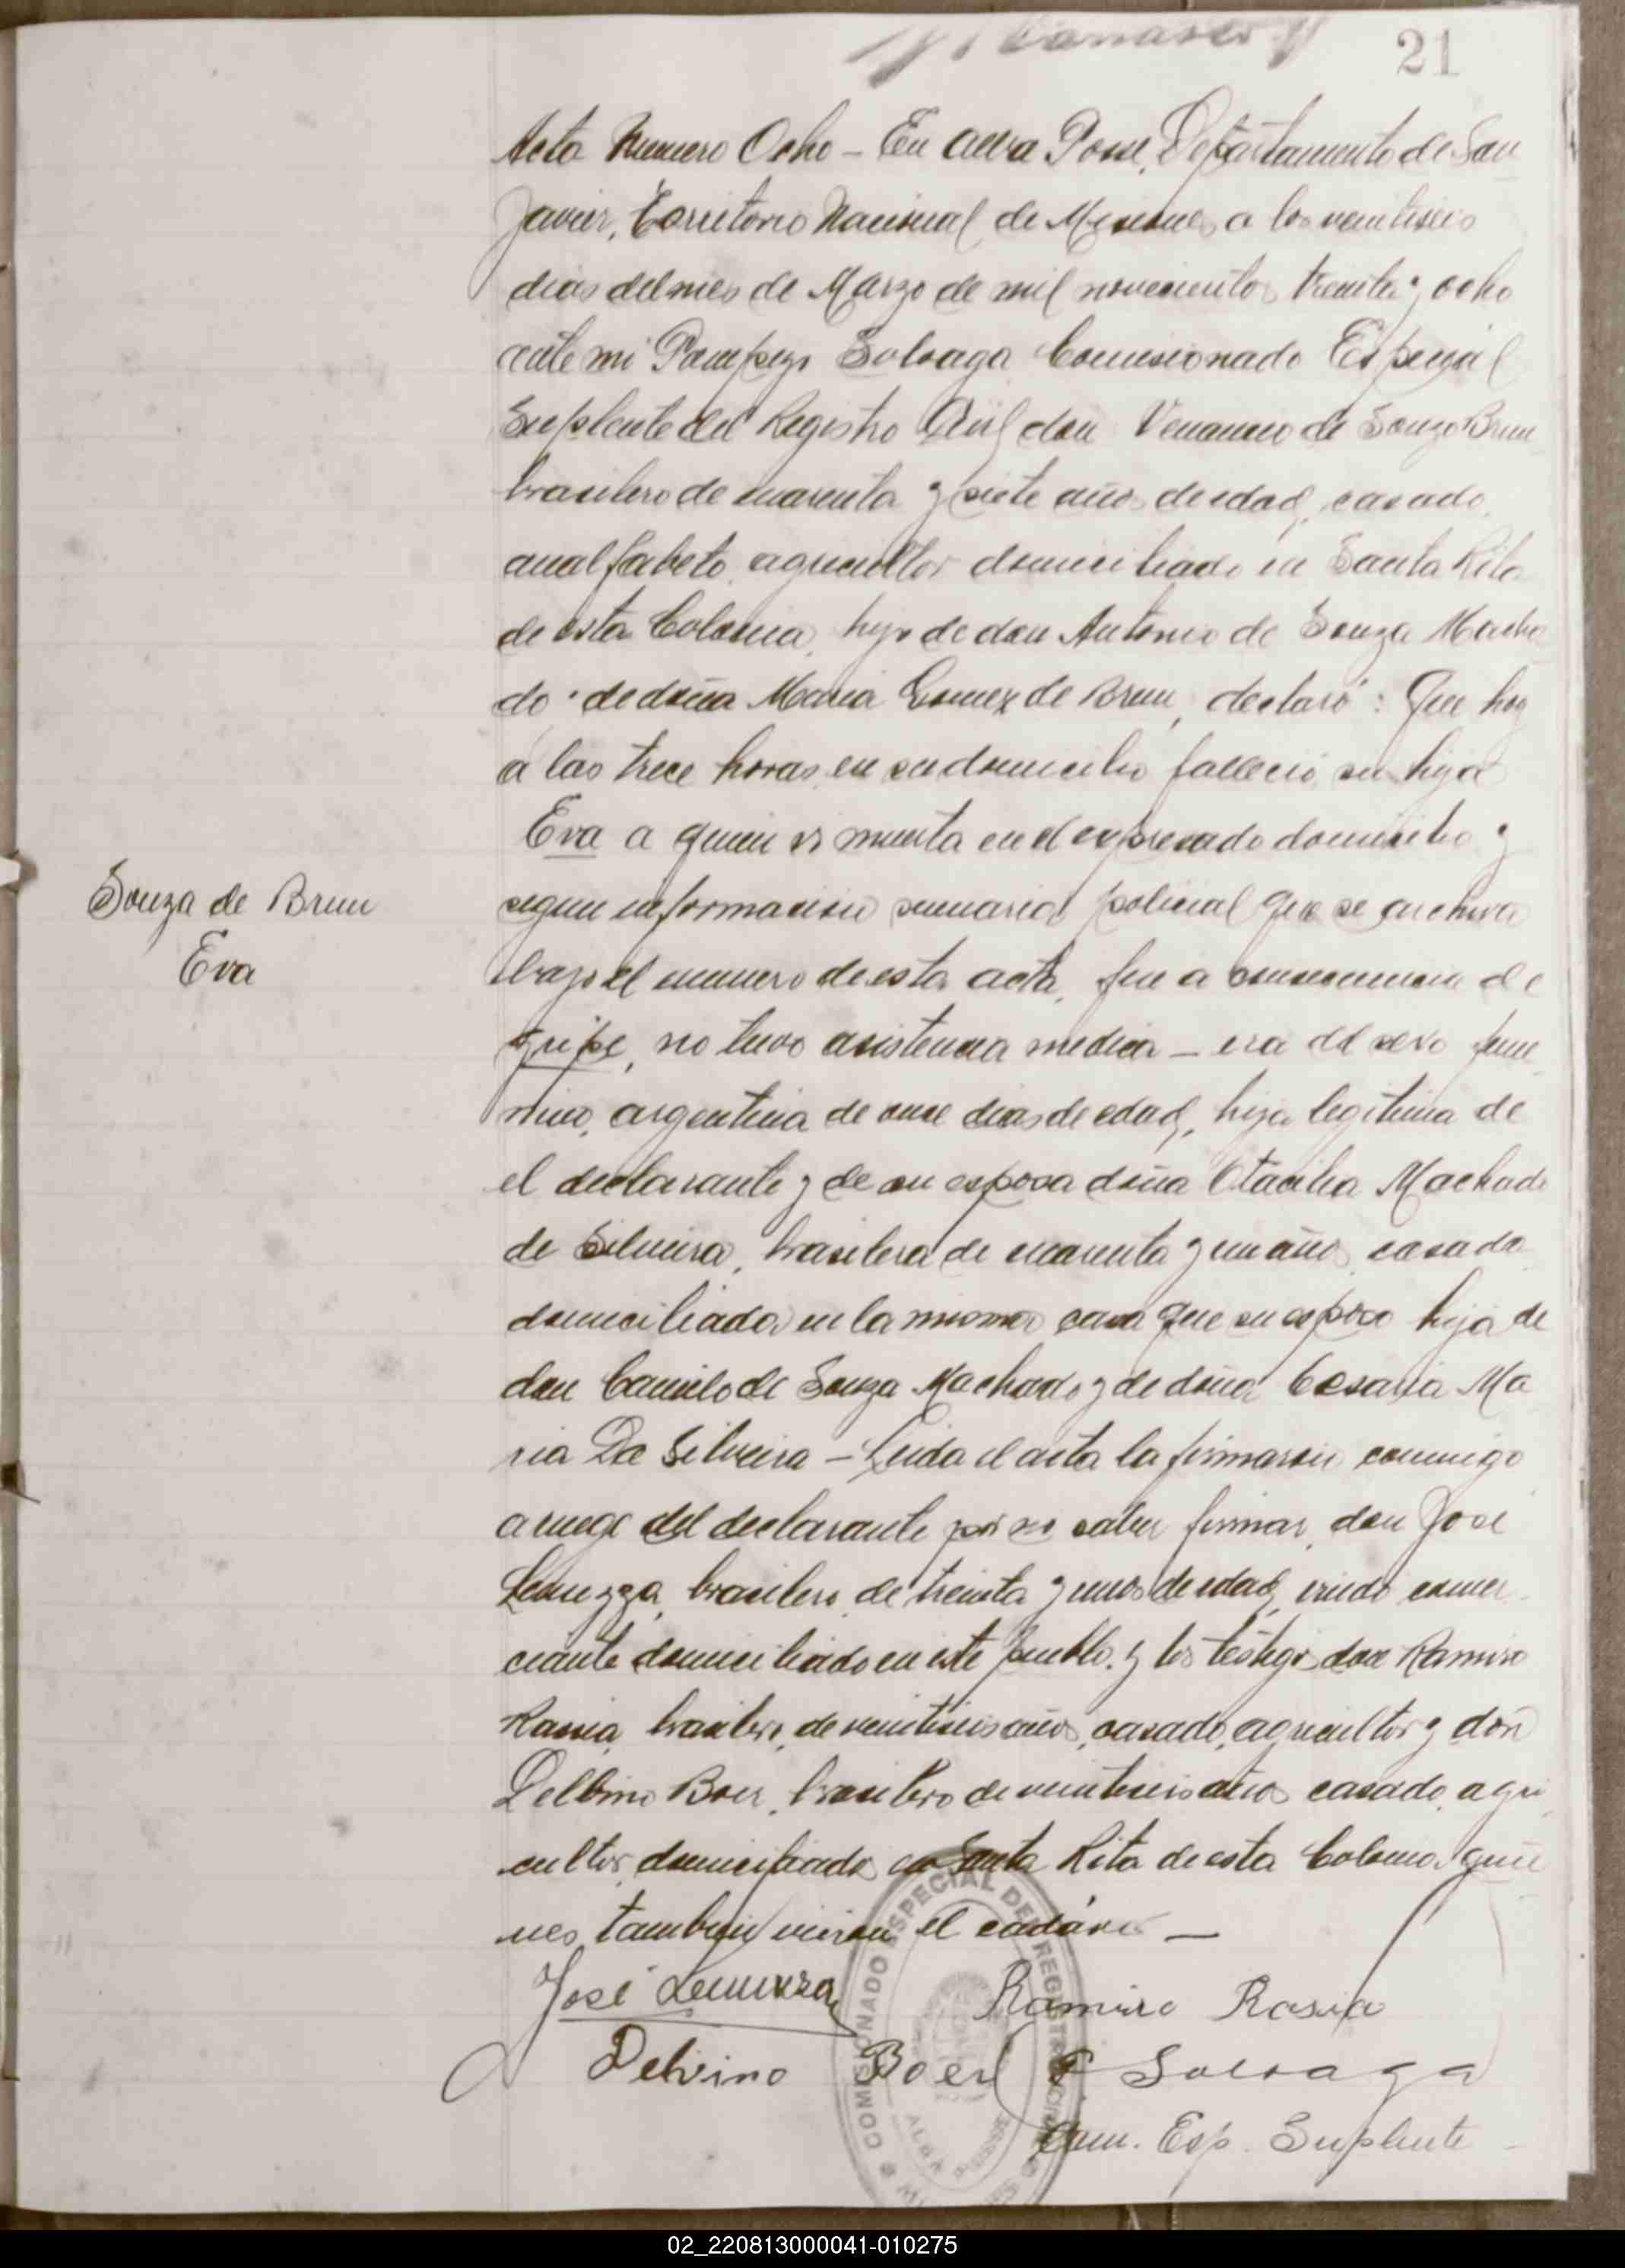 21
Acta Numero Ocho - En Alba Posse, Departamento de San
Javier, Territorio Nacional de Misiones a los veintiseis
dias del mes de Marzo de mil novecientos treinta y ocho
ante mi Pompeyo Solvaga Comisionado Especial
Suplente del Registro Civil don Venancio de Souza Brum
brasilero de cuarenta y siete años de edad, casado,
analfabeto, agricultor domiciliado en Santa Rita
de esta Colonia, hijo de don Antonio de Souza Macha
do y de doña Maria Gomez de Brum, declaró: Que hoy
a las trece horas en su domicilio falleció su hija
Eva a quien vi muerta en el expresado domicilio y
segun informacion sumaria policial que se archiva
bajo el numero de esta acta, fue a consecuencia de
gripe, no tuvo asistencia medica - era del sexo feme
nino, argentina de once dias de edad, hija legitima de
el declarante y de su esposa doña Otacilia Machado
de Silveira, brasilera de cuarenta y un años, casada
domiciliada en la misma casa que su esposo hija de
don Camilo de Souza Machado y de doña Cesaria Ma
ria Da Silveira - Leida el acta la firmaron conmigo
a ruego del declarante por no saber firmar, don José
brasilero, de treinta y unos de edad, viudo comer
ciante domiciliado en este pueblo. y los testigos don Ramiro
Rassia, brasilero, de veintiseis años, casado, agricultor y don
Delbino Boer, brasilero de veintiseis años casado, agri
cultor, domiciliados en Santa Rita de esta Colonia, quie
nes tambien vieron el cadáver —
Souza de Brum
Eva
José
Ramiro Rasia
Delvino Boer
P Solvaga
Com. Esp. Suplente
COMISIONADO ESPECIAL DEL REGISTRO CIVIL
ALBA POSSE
MISIONES
02_220813000041-010275